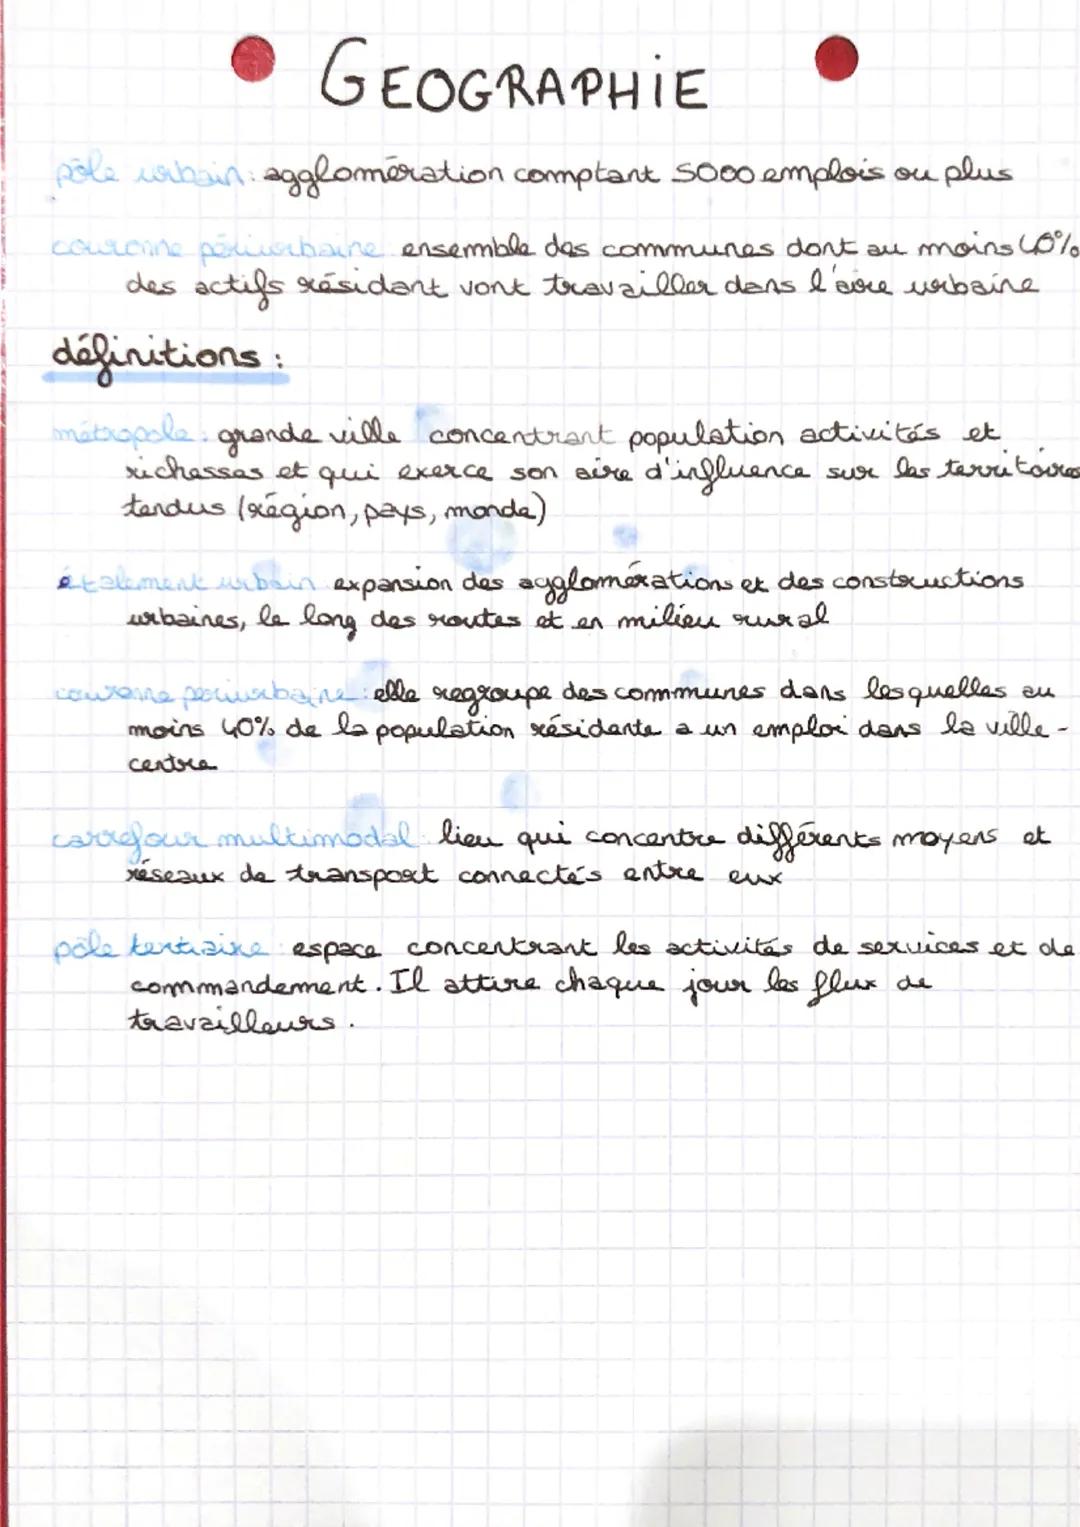 GEOGRAPHiE
pôle urbain: agglomération comptant 5000 emplois ou plus
couronne périurbaine ensemble des communes dont au moins 40%
des actifs résidant vont travailler dans l'aire urbaine
définitions :
métropole : grande ville concentrant population activités et
richesses et qui exerce son aire d'influence sur les territoires
tendus (région, pays, monde)
étalement urbain expansion des agglomérations et des constructions
urbaines, le long des routes et en milieu rural
couronne periurbaine : elle regroupe des communes dans lesquelles au
moins 40% de la population résidente a un emploi dans la ville-
centre
carrefour multimodal : lieu qui concentre différents moyens et
réseaux de transport connectés entre eux
pôle tertiaire : espace concentrant les activités de services et de
commandement. Il attire chaque jour les flux de
travailleurs.